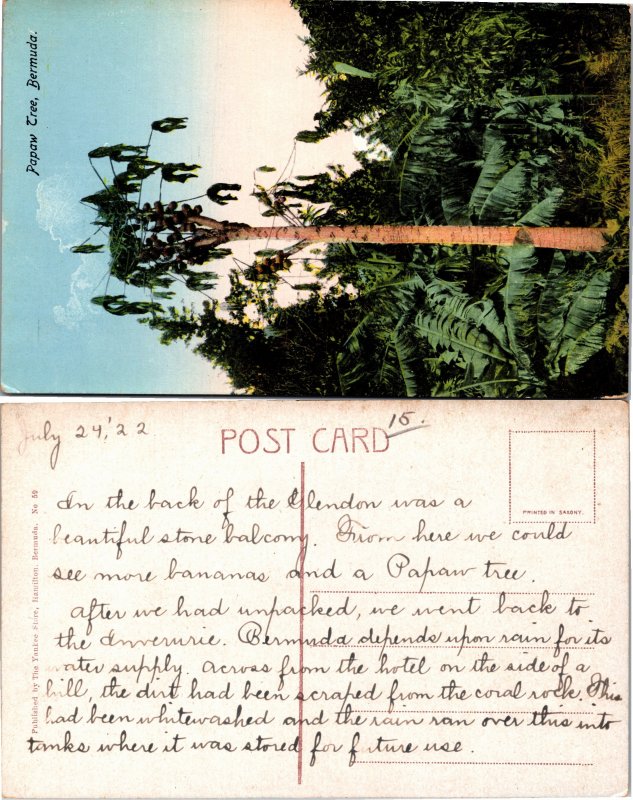 Papaw Tree, Bermuda.
July 24, '22
POST CARD
15.
PRINTED IN SAXONY.
Published by The Yankee Store, Hamilton, Bermuda. No 59
In the back of the Glendon was a
beautiful stone balcony. From here we could
see more bananas and a Papaw tree.
After we had unpacked, we went back to
the Inverurie. Bermuda depends upon rain for its
water supply. Across from the hotel on the side of a
hill, the dirt had been scraped from the coral rock. This
had been whitewashed and the rain ran over this into
tanks where it was stored for future use.